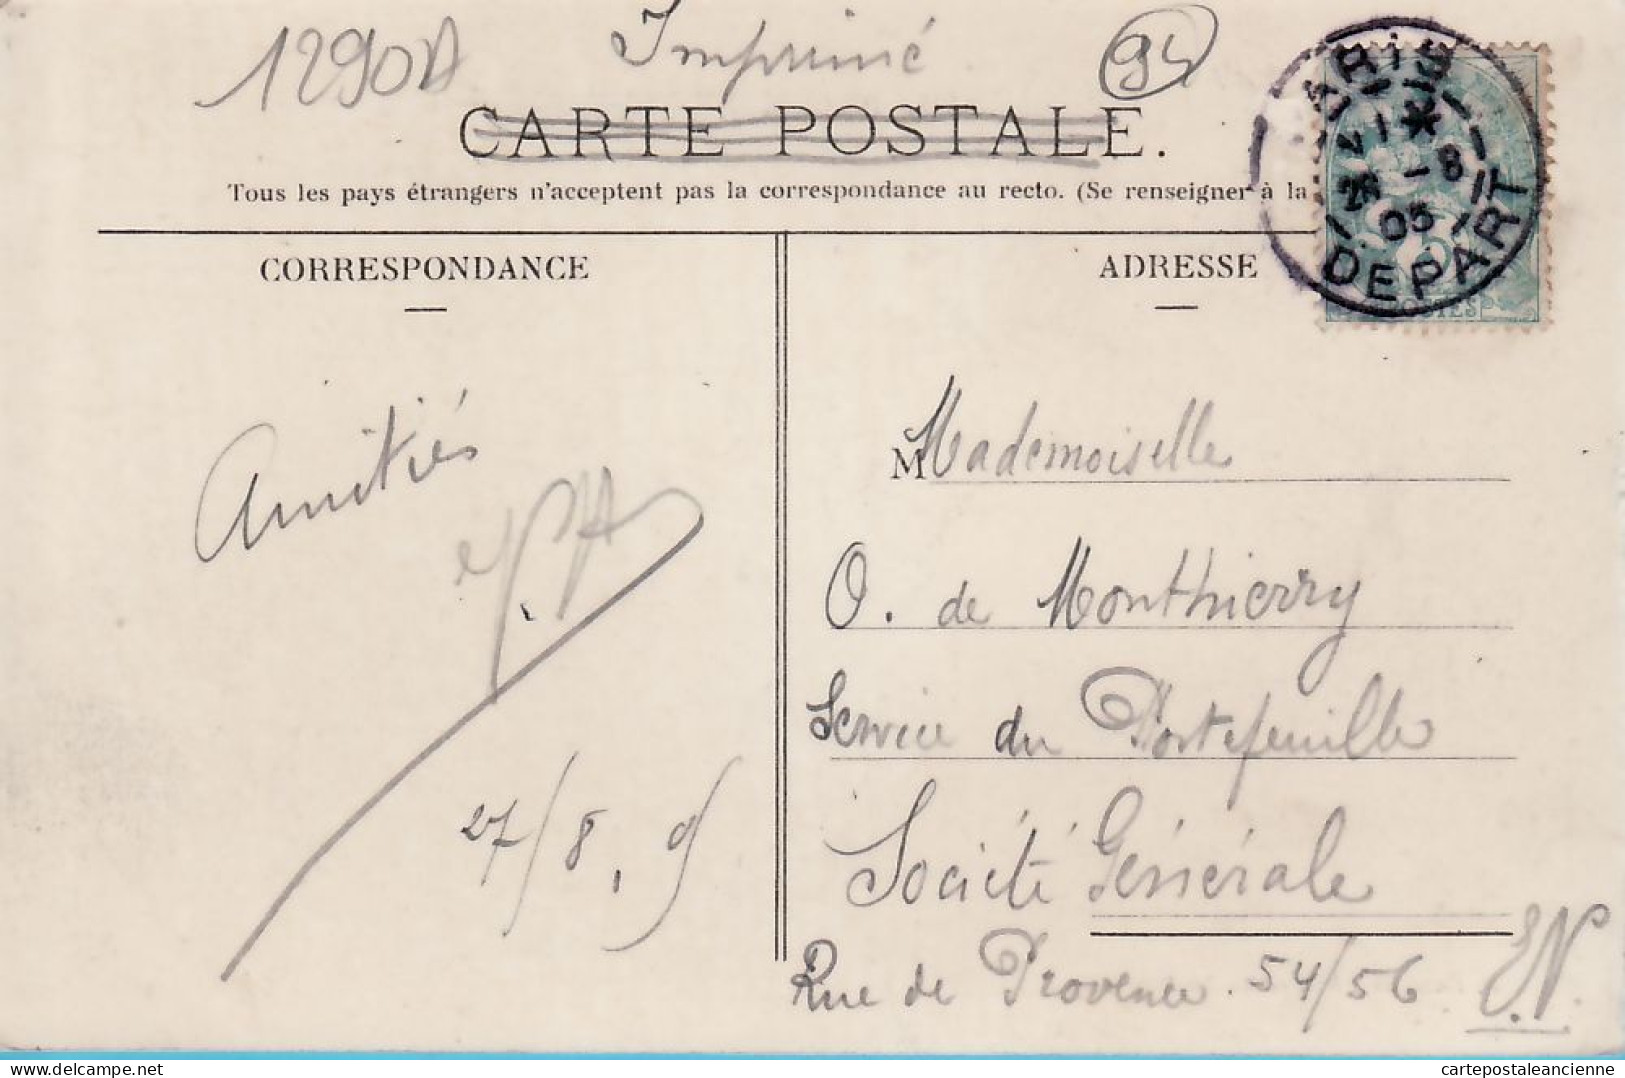 1290A Imprimé 94
CARTE POSTALE.
Tous les pays étrangers n'acceptent pas la correspondance au recto. (Se renseigner à la
PARIS
DEPART
-8
05
POSTES
CORRESPONDANCE
ADRESSE
Amitiés
27/8, 05
M Mademoiselle
O. de Monthierry
Service du Portefeuille
Société Générale
Rue de Provence 54/56 E.N.
delcampe.net
cartepostaleancienne